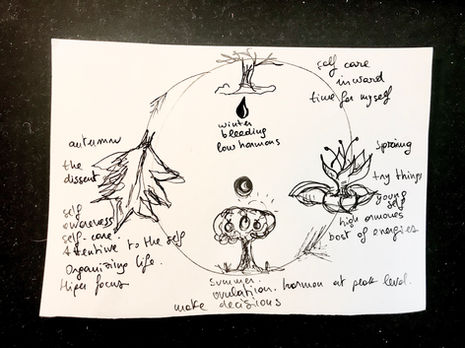 self care
inward
time for myself
winter
bleeding
low harmons
autumn
the
dissent
self
awareness
self-care.
Attentive to the self
Organising life.
Hiper focus
spraing
try things
young
self
high ormones
bost of energies
summer.
ovulation. harmon at peak level.
make decisions